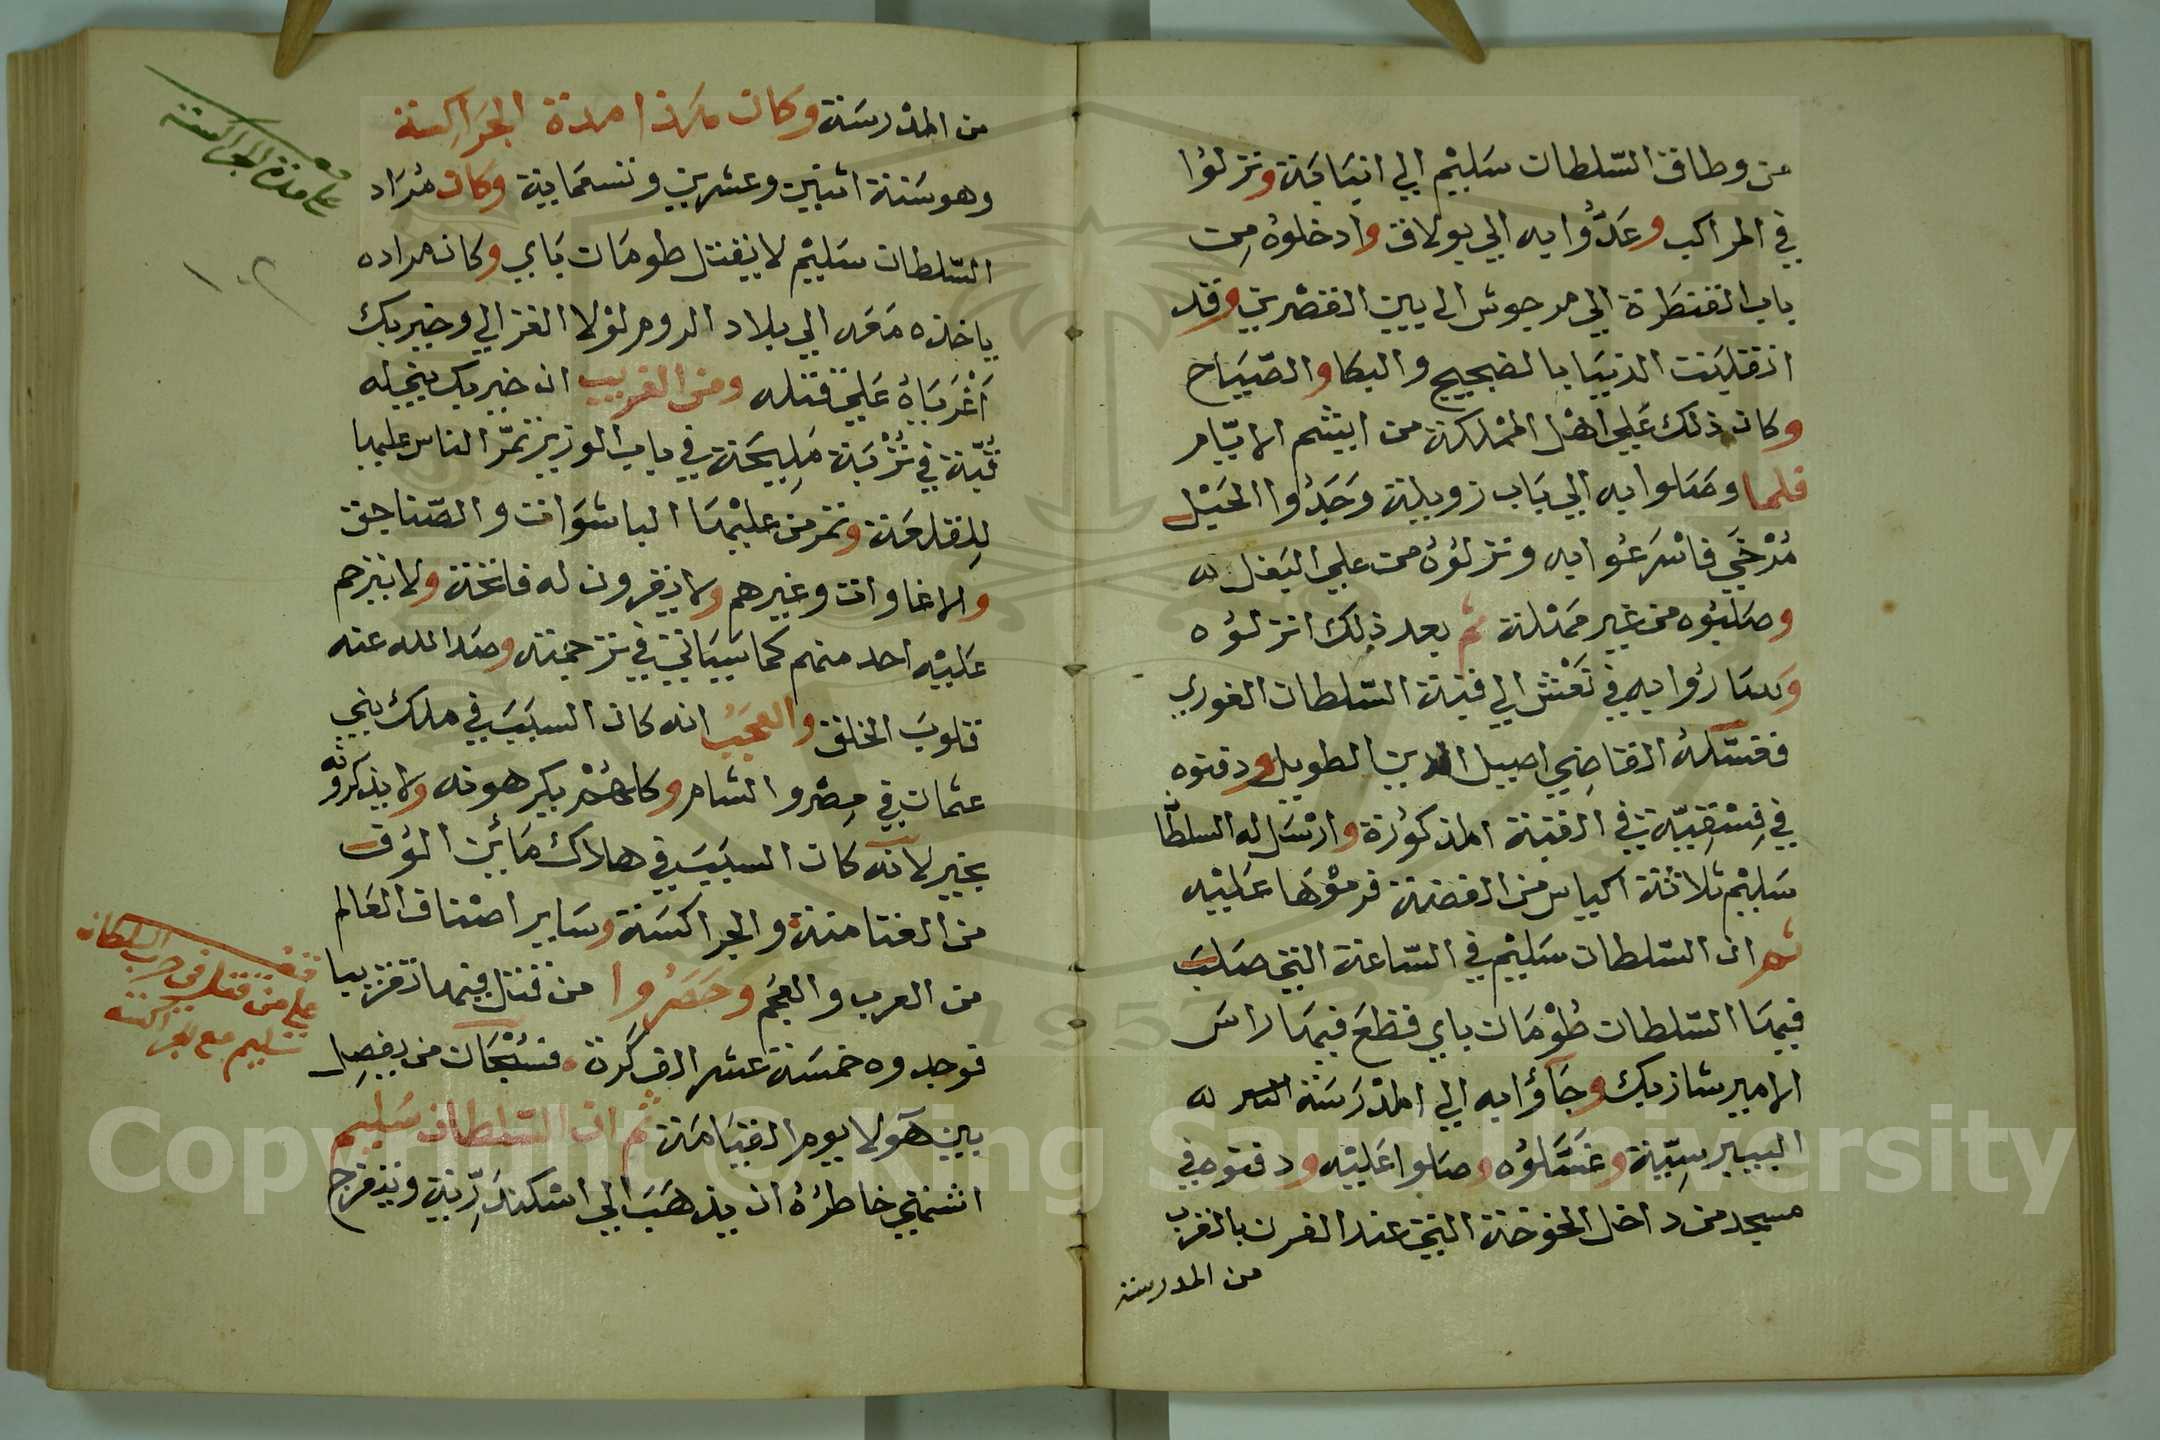 من وطاق السلطان سليم الي انبابة ونزلوا
في المراكب وعدوا به الي بولاق وادخلوه من
باب القنطرة الي مرجوش الي بين القصرين وقد
انقلبت الدنيا بالضجيج والبكا والصياح
وكان ذلك علي اهل المملكة من ايشم الايام
فلما وصلوا به الي باب زويلة وجدوا الحبل
مرخي فاسرعوا به ونزلوه من علي البغل
وصلبوه من غير مهلة ثم بعد ذلك انزلوه
وساروا به في نعش الي قبة السلطان الغوري
فغسله القاضي اصيل الدين الطويل ودفنوه
في فسقية في القبة المذكورة وارسل له السلطان
سليم ثلاثة اكياس من الفضة فرموها عليه
ثم ان السلطان سليم في الساعة التي صلب
فيها السلطان طومان باي قطع فيها راس
الامير شاربك وجاؤا به الي المدرسة
البيبرسية وغسلوه وصلوا عليه ودفنوه في
مسجد من داخل الخوخة التي عند الفرن بالقرب
من المدرسة
من المدرسة وكان هذا مدة الجراكسة
وهو سنة اثنين وعشرين وتسعماية وكان مراد
السلطان سليم لا يقتل طومان باي وكان مراده
ياخذه معه الي بلاد الروم لولا الغزالي وخيربك
اغرياه علي قتله ومن الغريب ان خيربك بني له
قبة في تربة مليحة في باب الوزير تمر الناس عليها
للقلعة وتمر من عليها الباشوات والصناجق
والاغاوات وغيرهم ولا يقرون له فاتحة ولا يترحم
عليه احد منهم كما سياتي في ترجمته وصد الله عنه
قلوب الخلق والعجب انه كان السبب في ملك بني
عثمان في مصر والشام وكلهم يكرهونه ولا يذكرونه
بخير لانه كان السبب في هلاك مايين الوف
من العثامنة والجراكسة وساير اصناف العالم
من العرب والعجم وحصروا من قتل فيها تقريبا
فوجدوه خمسة عشر الف كرة فسبحان من يفصل
بين هولا يوم القيامة ثم ان السلطان سليم
اشتهي خاطره ان يذهب الي اسكندرية ويتفرج
قف علي مدة الجراكسة
١٠٢
قف
علي من قتل في حرب السلطان
سليم مع الجراكسة
Copyright © King Saud University
1957